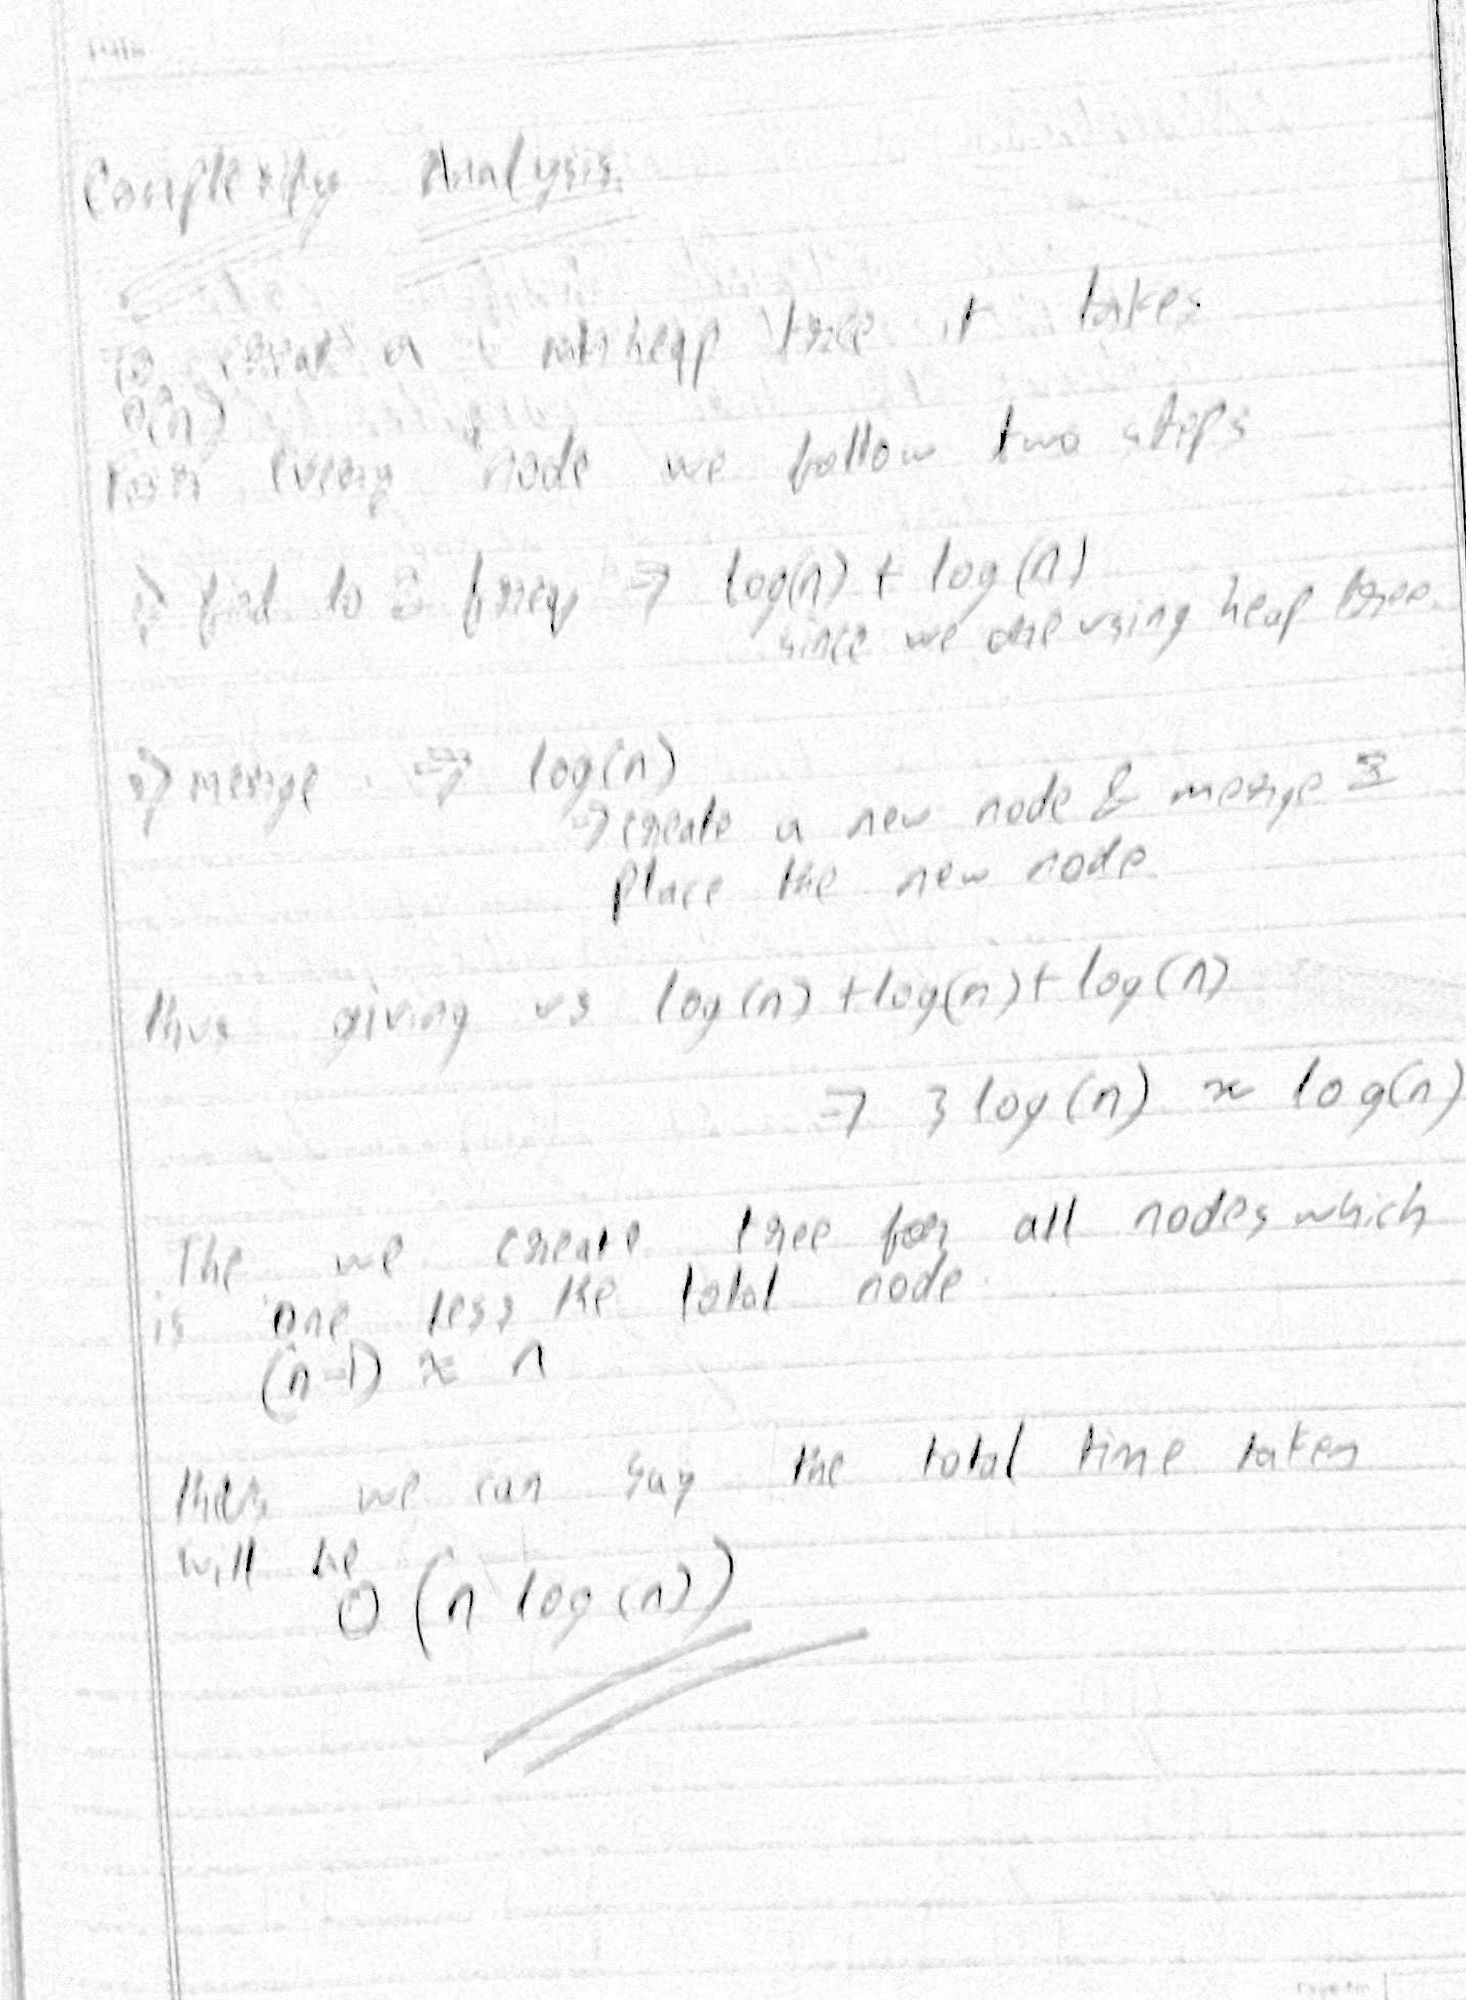 Complexity Analysis
To create a minheap tree it takes
O(n)
For every node we follow two steps
find to 2 freq ⇒ log(n) + log(n)
since we are using heap tree.
merge ⇒ log(n)
⇒ create a new node & merge
Place the new node
thus giving us log(n) + log(n) + log(n)
⇒ 3 log(n) ≈ log(n)
The we create tree for all nodes which
is one less the total node
(n-1) ≈ n
thus we can say the total time taken
will be
O (n log(n))